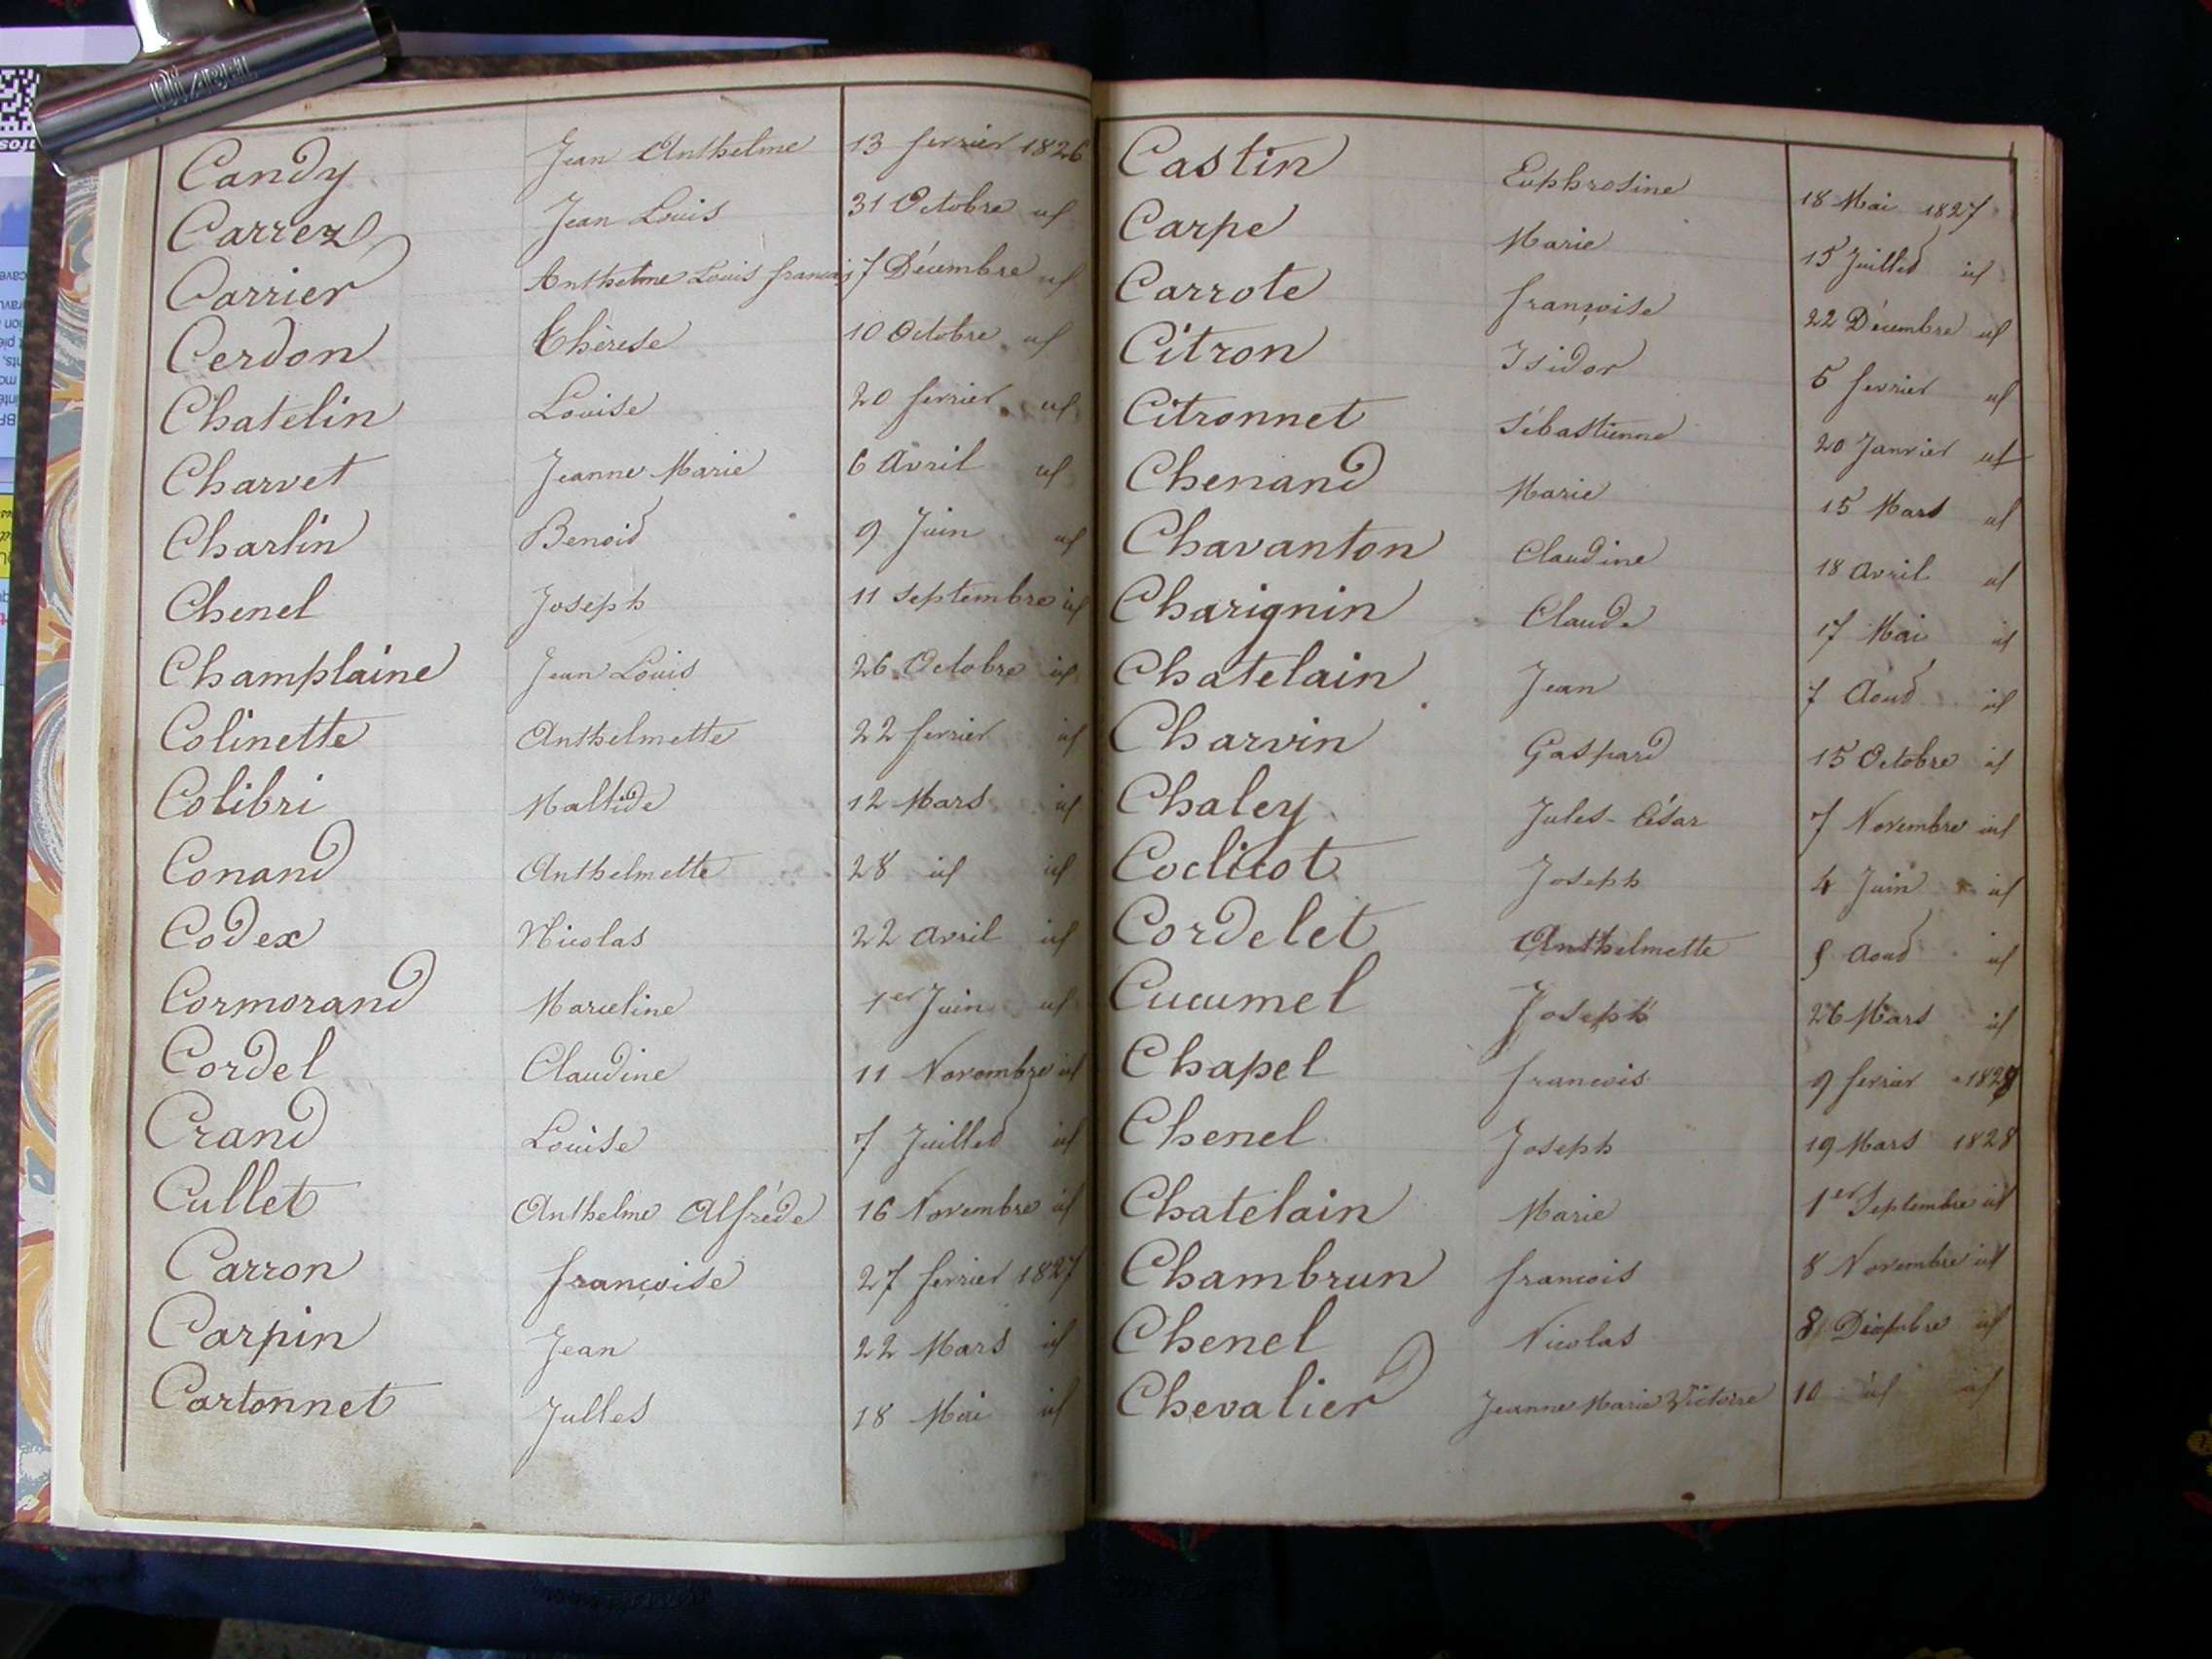 Candy Jean Anthelme 13 fevrier 1826
Carrez Jean Louis 31 Octobre id
Carrier Anthelme Louis francois 7 Décembre id
Cerdon Thérèse 10 Octobre id
Chatelin Louise 20 fevrier id
Charvet Jeanne Marie 6 Avril id
Charlin Benoid 9 Juin id
Chenel Joseph 11 Septembre id
Champlaine Jean Louis 26 Octobre id
Colinette Anthelmette 22 fevrier id
Colibri Maltide 12 Mars id
Conand Anthelmette 28 id id
Codex Nicolas 22 Avril id
Cormorand Marceline 1er Juin id
Cordel Claudine 11 Novembre id
Crand Louise 7 Juilled id
Cullet Anthelme Alfréde 16 Novembre id
Carron françoise 27 fevrier 1827
Carpin Jean 22 Mars id
Cartonnet Julles 18 Mai id
Castin Euphrosine 18 Mai 1827
Carpe Marie 15 Juilled id
Carrote françoise 22 Décembre id
Citron Isidor 5 fevrier id
Citronnet Sébastienne 20 Janvier id
Chenand Marie 15 Mars id
Chavanton Claudine 18 Avril id
Charignin Claude 17 Mai id
Chatelain Jean 7 Aoud id
Charvin Gaspard 15 Octobre id
Chaley Jules-César 7 Novembre id
Coclicot Joseph 4 Juin id
Cordelet Anthelmette Aoud id
Cucumel Joseph 26 Mars id
Chapel francois 9 fevrier 1828
Chenel Joseph 19 Mars 1828
Chatelain Marie 1er Septembre id
Chambrun francois 8 Novembre id
Chenel Nicolas 8 id
Chevalier Jeanne Marie Victoire 10 id id